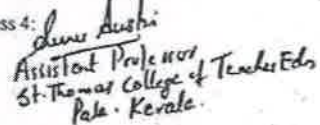 ss 4:
Assistant Professor
St. Thomas College of Teacher Edn
Pala. Kerala.